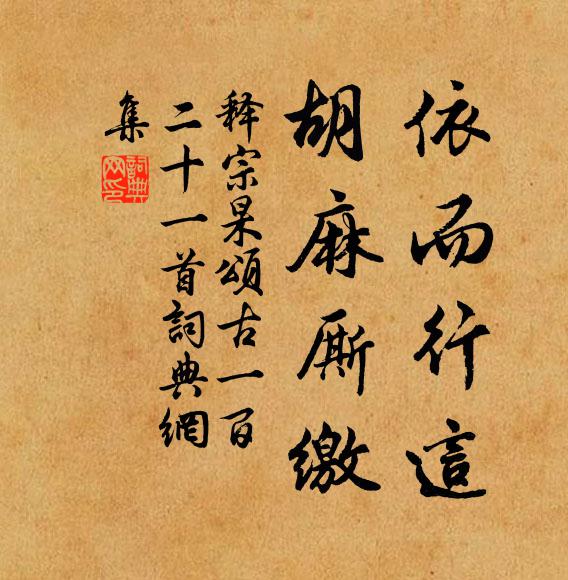 依而行這
胡麻厮繳
释宗杲頌古一百
二十一首詞典網
集
詞典網印